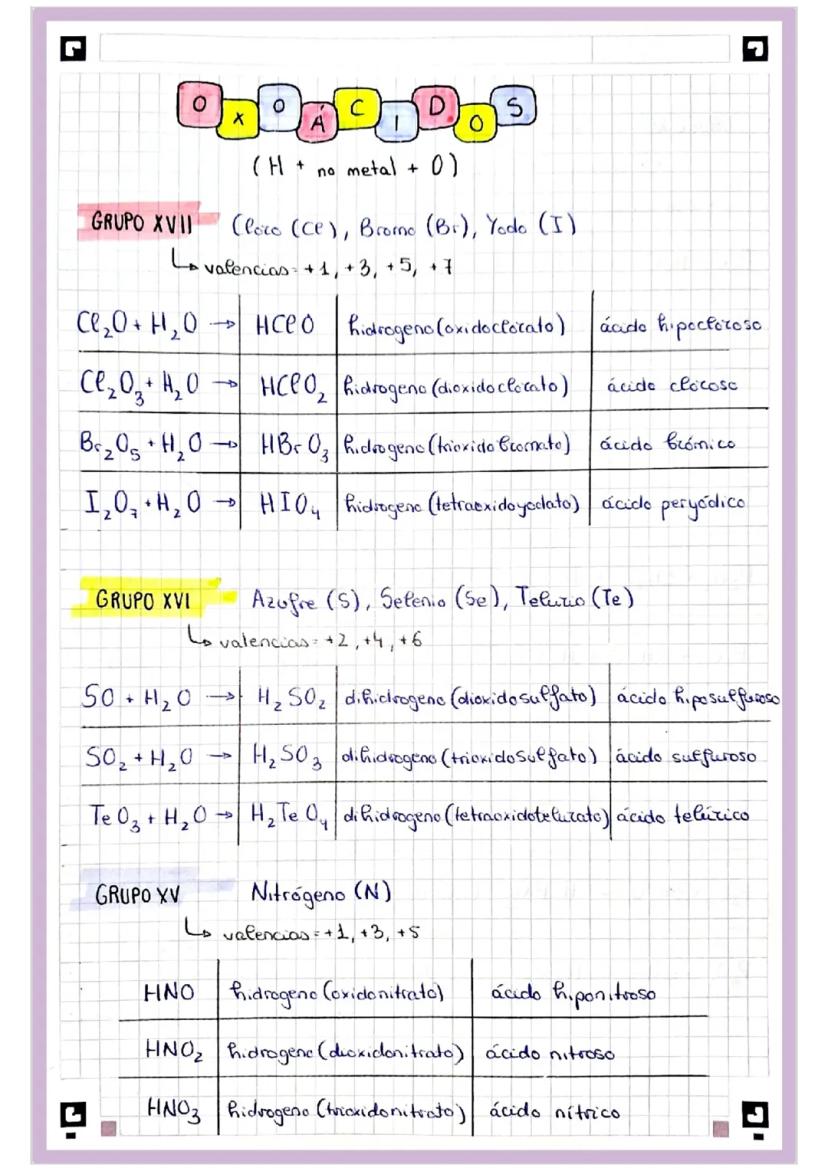 OXOÁCIDOS
(H + no metal + O)
GRUPO XVII Cloro (Cl), Bromo (Br), Yodo (I)
↳ valencias= +1, +3, +5, +7
Cl₂O + H₂O → HClO hidrogeno(oxidoclorato) ácido hipocloroso
Cl₂O₃ + H₂O → HClO₂ hidrogeno (dioxidoclorato) ácido cloroso
Br₂O₅ + H₂O → HBrO₃ hidrogeno (trioxidobromato) ácido brómico
I₂O₇ + H₂O → HIO₄ hidrogeno (tetraoxidoyodato) ácido peryódico
GRUPO XVI Azufre (S), Selenio (Se), Telurio (Te)
↳ valencias= +2, +4, +6
SO + H₂O → H₂SO₂ dihidrogeno (dioxidosulfato) ácido hiposulfuroso
SO₂ + H₂O → H₂SO₃ dihidrogeno (trioxidosulfato) ácido sulfuroso
TeO₃ + H₂O → H₂TeO₄ dihidrogeno (tetraoxidotelurato) ácido telúrico
GRUPO XV Nitrógeno (N)
↳ valencias= +1, +3, +5
HNO hidrogeno (oxidonitrato) ácido hiponitroso
HNO₂ hidrogeno (dioxidonitrato) ácido nitroso
HNO₃ hidrogeno (trioxidonitrato) ácido nítrico